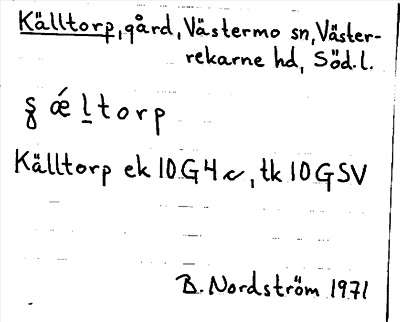 Källtorp, gård, Västermo sn, Väster-
rekarne hd, Söd.l.
ʂ ǽ l̲ t o r p
Källtorp ek 10G4c, tk 10GSV
B. Nordström 1971